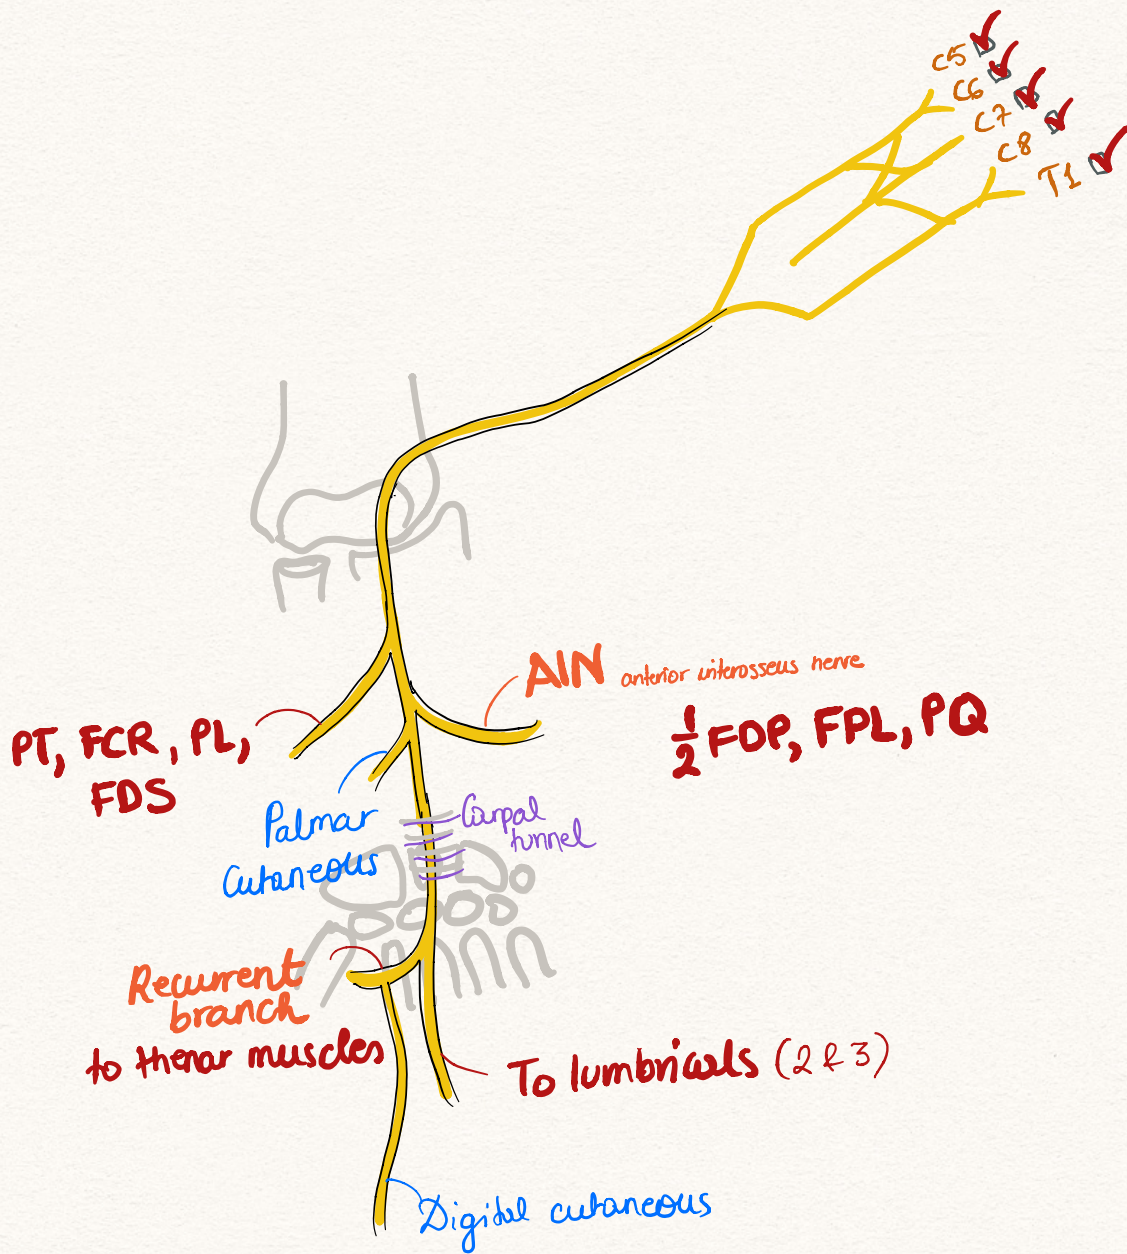 C5
C6
C7
C8
T1
AIN anterior interosseus nerve
½ FDP, FPL, PQ
PT, FCR, PL,
FDS
Palmar
Cutaneous
Carpal
tunnel
Recurrent
branch
to thenar muscles
To lumbricals (2 & 3)
Digital cutaneous